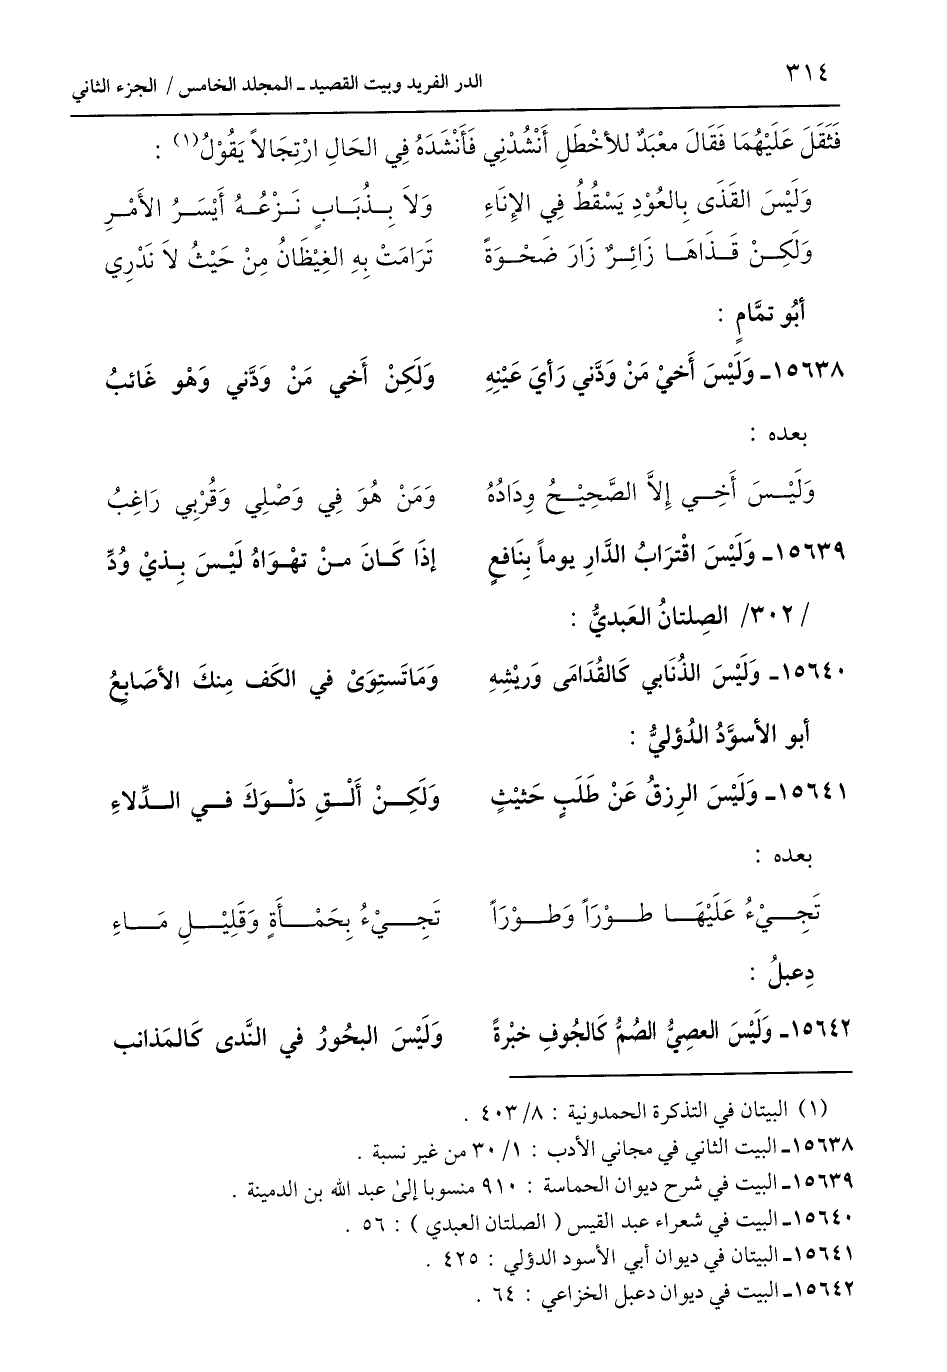 ٣١٤ الدر الفريد وبيت القصيد ـ المجلد الخامس / الجزء الثاني
فَثَقَلَ عَلَيْهُمَا فَقَالَ معْبَدٌ للأخْطَلِ أَنْشُدْنِي فَأَنْشَدَهُ فِي الحَالِ ارْتِجَالاً يَقُوْلُ(١) :
وَلَيْسَ القَذَى بِالعُوْدِ يَسْقُطُ فِي الإِنَاءِ وَلاَ بِذُبَابٍ نَزْعُهُ أَيْسَرُ الأَمْرِ
وَلَكِنْ قَذَاهَا زَائِرٌ زَارَ ضَحْوَةً تَرَامَتْ بِهِ الغِيْطَانُ مِنْ حَيْثُ لاَ نَدْرِي
أَبُو تمَّامٍ :
١٥٦٣٨ـ وَلَيْسَ أَخيْ مَنْ وَدَّني رَأيَ عَيْنِهِ وَلَكِنْ أَخي مَنْ وَدَّني وَهْو غَائبُ
بعده :
وَلَيْسَ أَخِي إِلاَّ الصَّحِيْحُ وِدَادُهُ وَمَنْ هُوَ فِي وَصْلِي وَقُرْبِي رَاغِبُ
١٥٦٣٩ـ وَلَيْسَ اقْتِرَابُ الدَّارِ يوماً بِنَافعٍ إذَا كَانَ منْ تهْوَاهُ لَيْسَ بِذيْ وُدِّ
/ ٣٠٢/ الصِلتانُ العَبديُّ :
١٥٦٤٠ـ وَلَيْسَ الذُنَابي كَالقُدَامَى وَريْشِهِ وَمَاتَستِوَىْ في الكَف مِنكَ الأصَابِعُ
أبو الأسوَّدُ الدُؤليُّ :
١٥٦٤١ـ وَلَيْسَ الرِزقُ عَنْ طَلَبٍ حَثيْثٍ وَلَكِنْ أَلْقِ دَلْوَكَ في الدِّلاءِ
بعده :
تَجِيْءُ عَلَيْهَا طوْرَاً وَطوْرَاً تَجِيْءُ بِحَمْأَةٍ وَقَلِيْلِ مَاءِ
دِعبلُ :
١٥٦٤٢ـ وَلَيْسَ العصِيُّ الصُمُّ كَالجُوفِ خبْرةً وَلَيْسَ البحُورُ في النَّدى كَالمَذانب
(١) البيتان في التذكرة الحمدونية : ٨/ ٤٠٣ .
١٥٦٣٨ـ البيت الثاني في مجاني الأدب : ١/ ٣٠ من غير نسبة .
١٥٦٣٩ـ البيت في شرح ديوان الحماسة : ٩١٠ منسوبا إلىٰ عبد الله بن الدمينة .
١٥٦٤٠ـ البيت في شعراء عبد القيس ( الصلتان العبدي ) : ٥٦ .
١٥٦٤١ـ البيتان في ديوان أبي الأسود الدؤلي : ٤٢٥ .
١٥٦٤٢ـ البيت في ديوان دعبل الخزاعي : ٦٤ .